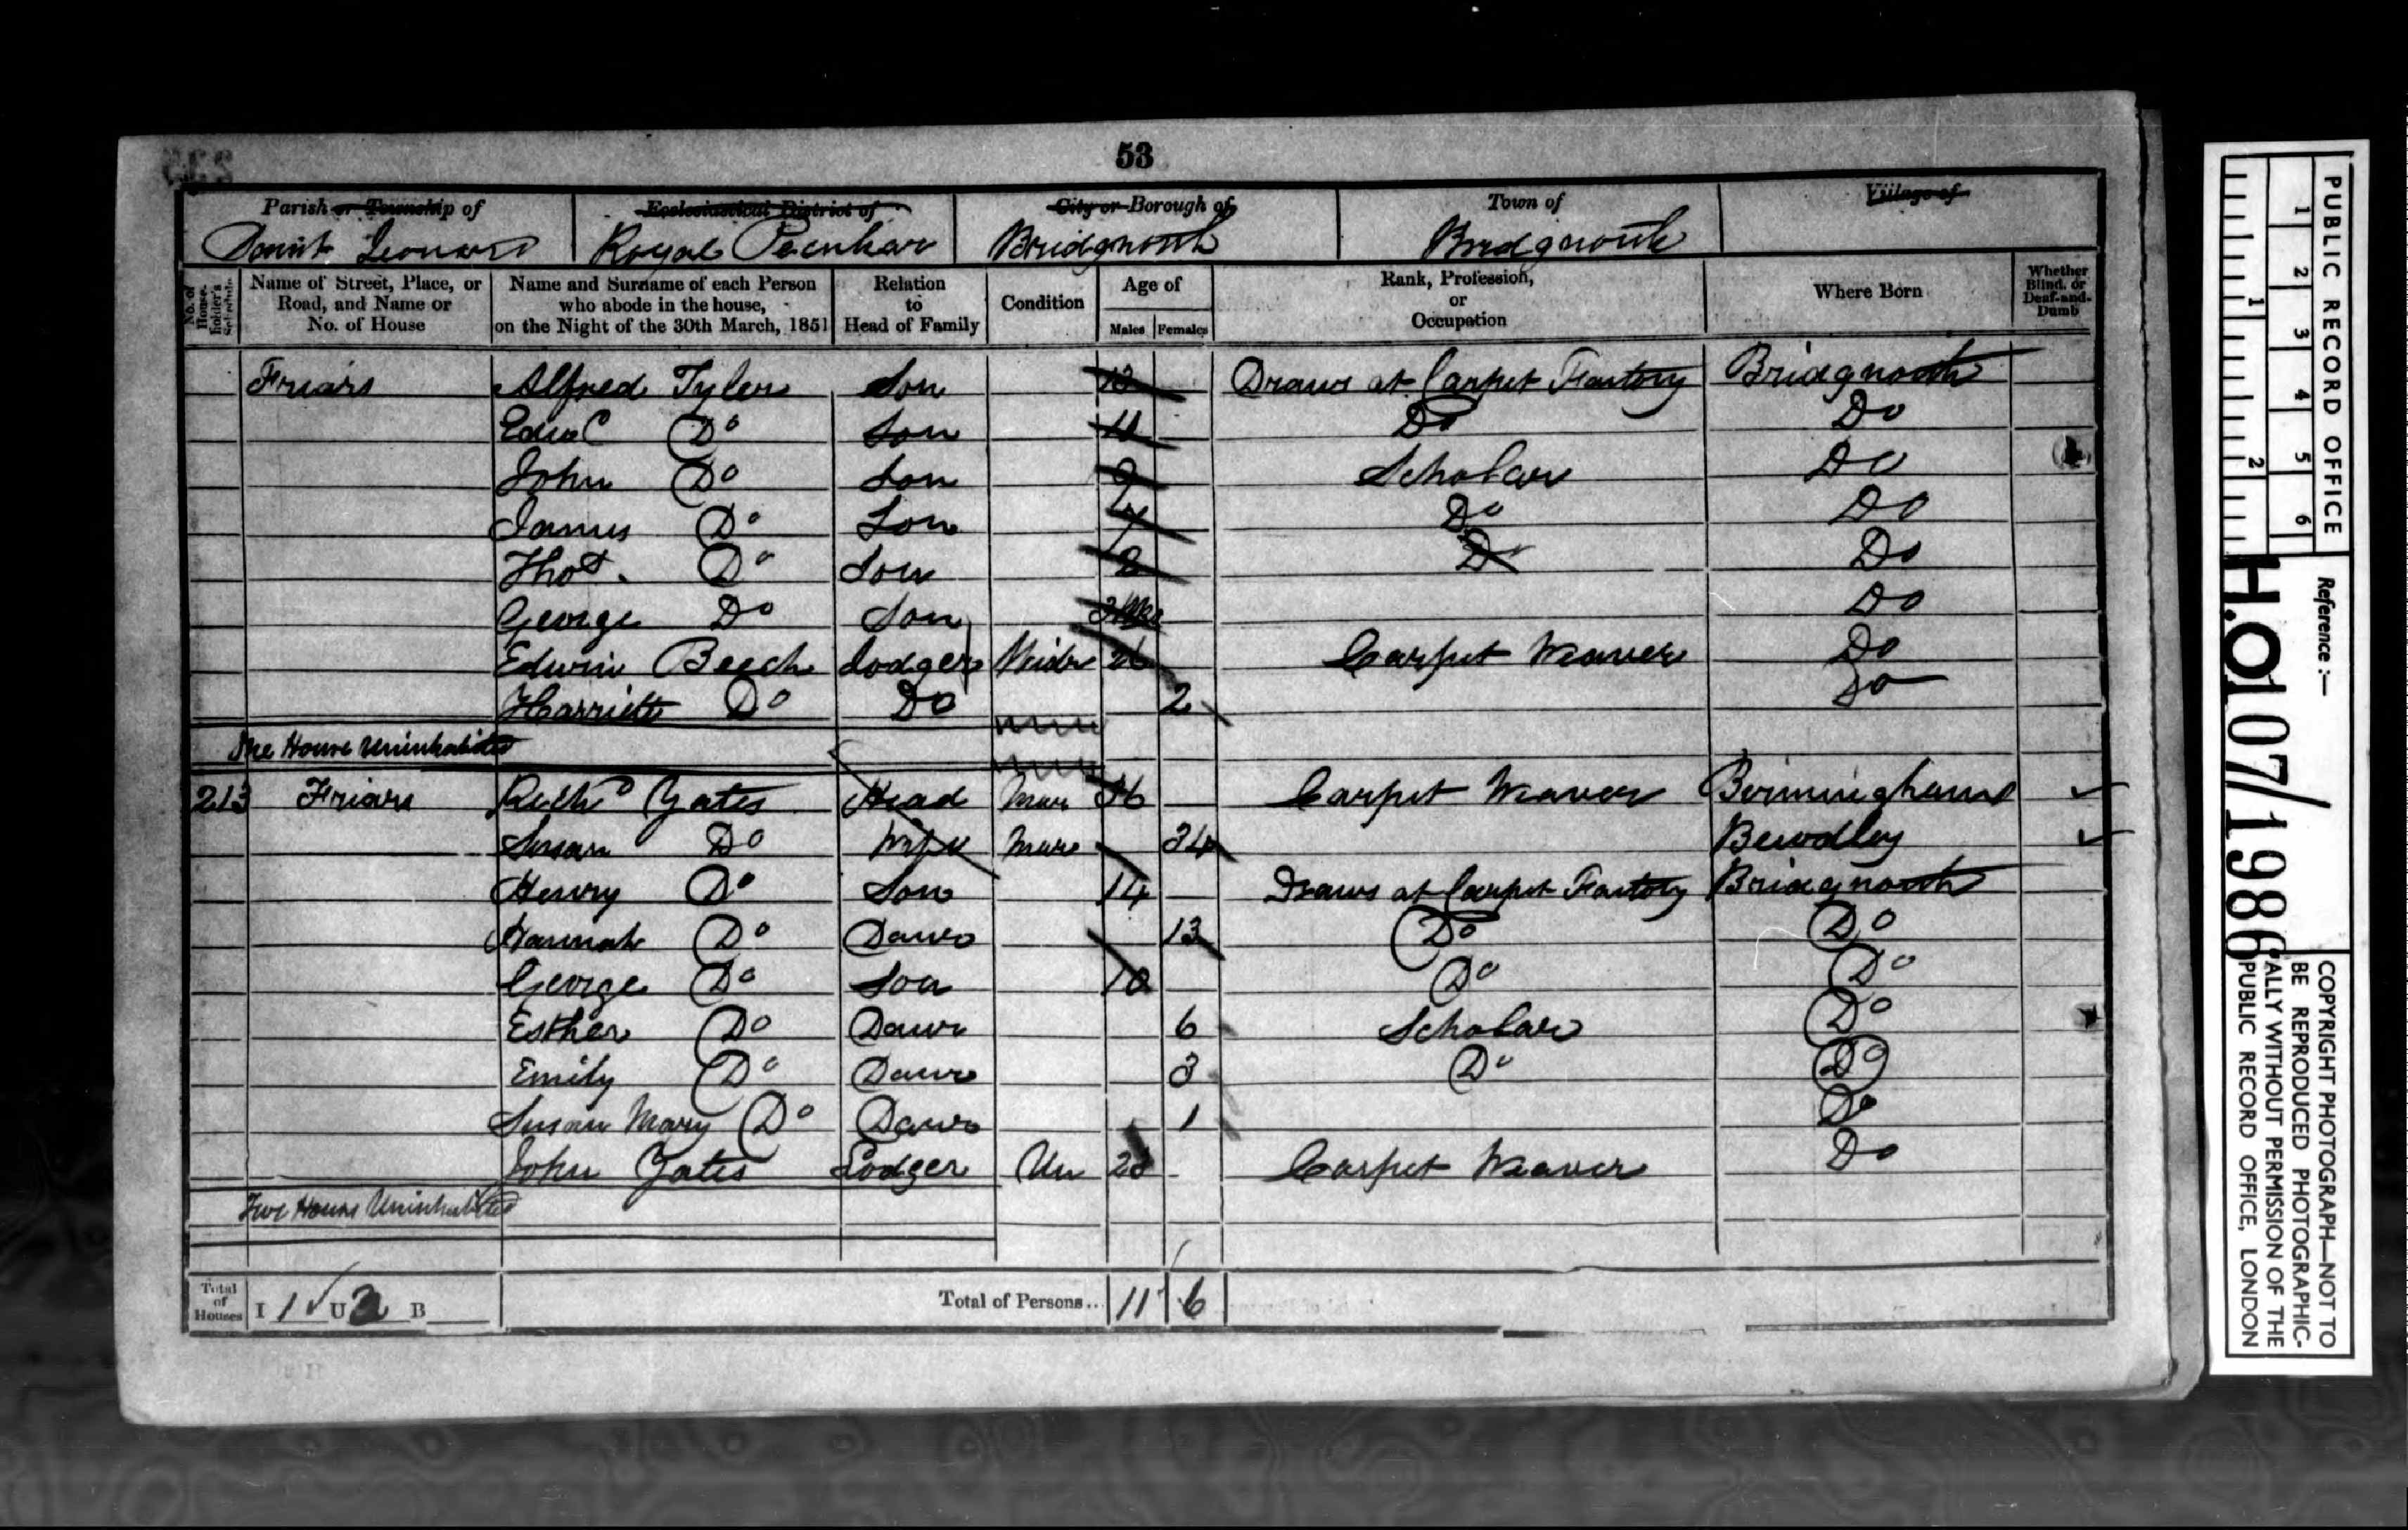 53
Parish or Township of Ecclesiastical District of City or Borough of Town of Village of
Saint Leonard Royal Peculiar Bridgnorth Bridgnorth
No. of House-holder's Schedule
Name of Street, Place, or Road, and Name or No. of House
Name and Surname of each Person who abode in the house, on the Night of the 30th March, 1851
Relation to Head of Family
Condition
Age of
Males Females
Rank, Profession, or Occupation
Where Born
Whether Blind, or Deaf-and-Dumb
Friars Alfred Tyler Son 13 Draws at Carpet Factory Bridgnorth
Do Son 11 Do Do
John Do Son 9 Scholar Do
James Do Son Do Do
Thos. Do Son 2 Do Do
George Do Son Do
Edwin Beech Lodger 26 Carpet Weaver Do
Harriett Do Do 2 Do
One House Uninhabited
213 Friars Richd Yates Head Mar 36 Carpet Weaver Birmingham
Susan Do Wife Mar 34 Bewdley
Henry Do Son 14 Draws at Carpet Factory Bridgnorth
Hannah Do Daur 13 Do Do
George Do Son 10 Do Do
Esther Do Daur 6 Scholar Do
Emily Do Daur 3 Do Do
Susan Mary Do Daur 1 Do
John Yates Lodger Un Carpet Weaver Do
Two Houses Uninhabited
Total of Houses I 1 U 3 B Total of Persons.. 11 6
PUBLIC RECORD OFFICE
1 2 3 4 5 6
1 2
Reference:—
H.O.107/1986
COPYRIGHT PHOTOGRAPH—NOT TO
BE REPRODUCED PHOTOGRAPHIC-
ALLY WITHOUT PERMISSION OF THE
PUBLIC RECORD OFFICE, LONDON